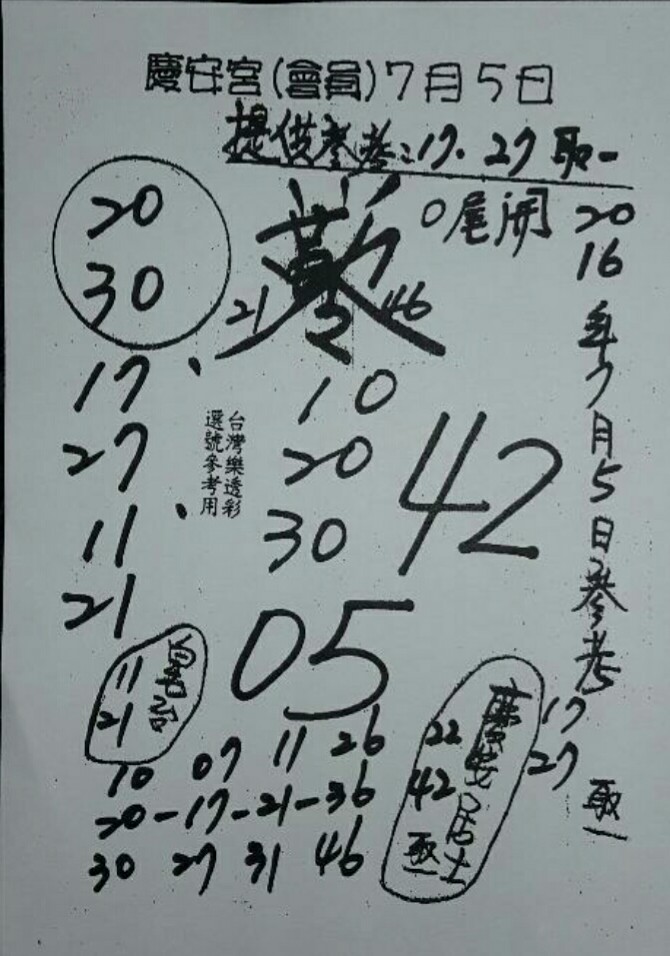 慶安宮(會員)7月5日
提供參考:17.27取一
0尾開
20
30
21
46
17、
27
11、
21
10
20
30
42
台灣樂透彩
選號參考用
05
2016年7月5日參考
17
27
取一
11
21
慶安居士
22
42
取一
10 07 11 26
20-17-21-36
30 27 31 46